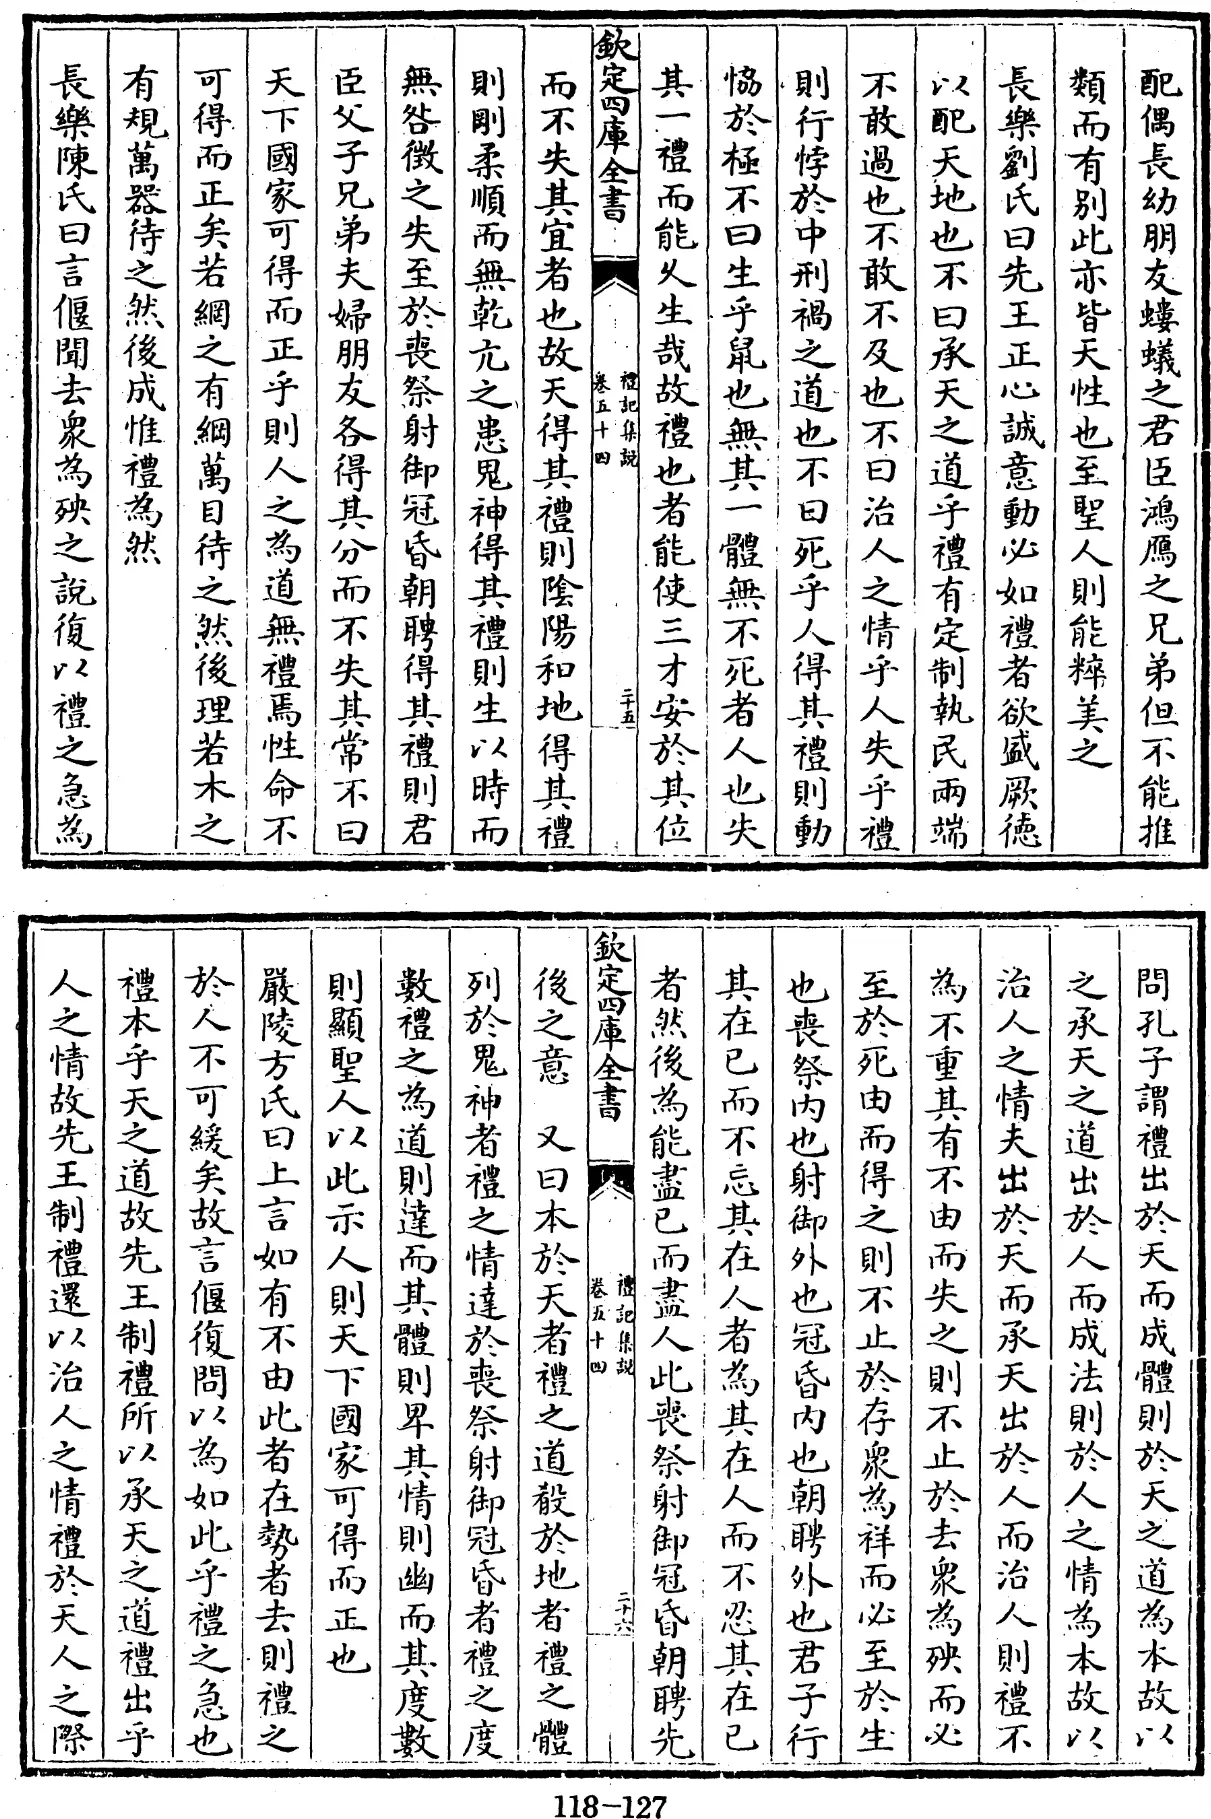 配偶長幼朋友螻蟻之君臣鴻鴈之兄弟但不能推
類而有别此亦皆天性也至聖人則能粹美之
長樂劉氏曰先王正心誠意動必如禮者欲盛厥徳
以配天地也不曰承天之道乎禮有定制執民兩端
不敢過也不敢不及也不曰治人之情乎人失乎禮
則行悖於中刑禍之道也不曰死乎人得其禮則動
恊於極不曰生乎鼠也無其一體無不死者人也失
其一禮而能乆生哉故禮也者能使三才安於其位
欽定四庫全書
禮記集説
卷五十四
二十五
而不失其宜者也故天得其禮則陰陽和地得其禮
則剛柔順而無乾亢之患鬼神得其禮則生以時而
無咎徴之失至於喪祭射御冠昏朝聘得其禮則君
臣父子兄弟夫婦朋友各得其分而不失其常不曰
天下國家可得而正乎則人之為道無禮焉性命不
可得而正矣若網之有綱萬目待之然後理若木之
有規萬器待之然後成惟禮為然
長樂陳氏曰言偃聞去衆為殃之説復以禮之急為
問孔子謂禮出於天而成體則於天之道為本故以
之承天之道出於人而成法則於人之情為本故以
治人之情夫出於天而承天出於人而治人則禮不
為不重其有不由而失之則不止於去衆為殃而必
至於死由而得之則不止於存衆為祥而必至於生
也喪祭内也射御外也冠昏内也朝聘外也君子行
其在已而不忘其在人者為其在人而不忍其在已
者然後為能盡已而盡人此喪祭射御冠昏朝聘先
欽定四庫全書
禮記集説
卷五十四
二十六
後之意　又曰本於天者禮之道殽於地者禮之體
列於鬼神者禮之情達於喪祭射御冠昏者禮之度
數禮之為道則達而其體則卑其情則幽而其度數
則顯聖人以此示人則天下國家可得而正也
嚴陵方氏曰上言如有不由此者在勢者去則禮之
於人不可緩矣故言偃復問以為如此乎禮之急也
禮本乎天之道故先王制禮所以承天之道禮出乎
人之情故先王制禮還以治人之情禮於天人之際
118-127